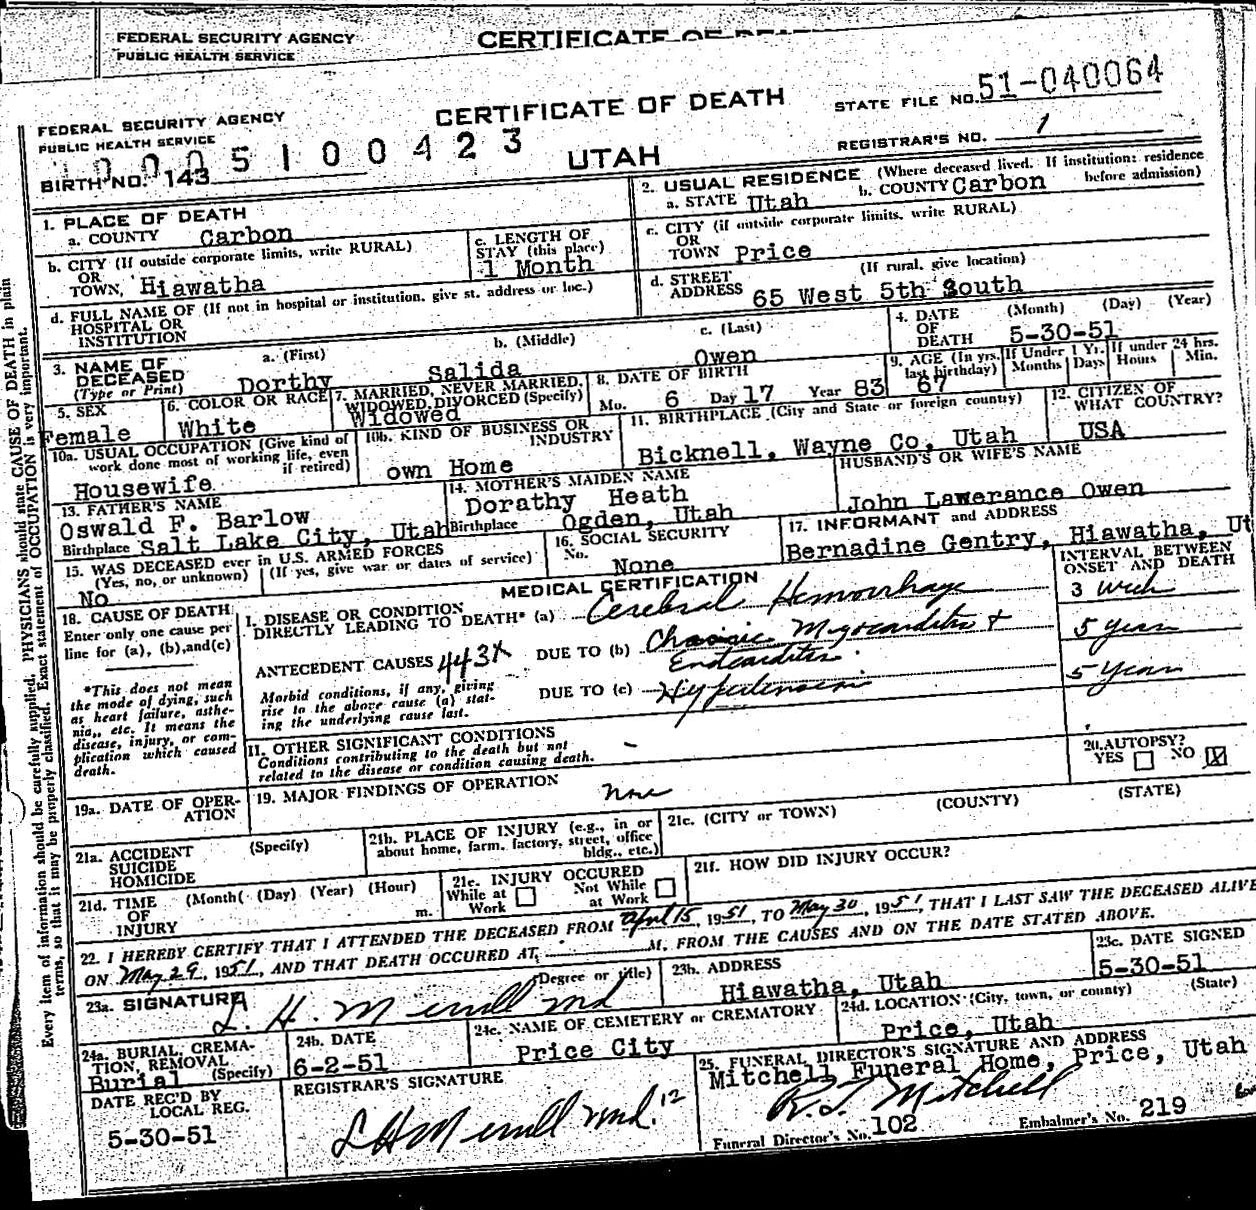 FEDERAL SECURITY AGENCY
PUBLIC HEALTH SERVICE
CERTIFICATE OF
FEDERAL SECURITY AGENCY
PUBLIC HEALTH SERVICE
CERTIFICATE OF DEATH
UTAH
STATE FILE NO. 51-040064
REGISTRAR'S NO. 1
5 1 0 0 4 2 3
BIRTH NO. 143
1. PLACE OF DEATH
a. COUNTY Carbon
b. CITY (If outside corporate limits, write RURAL)
OR
TOWN, Hiawatha
c. LENGTH OF
STAY (this place)
1 Month
d. FULL NAME OF (If not in hospital or institution, give st. address or loc.)
HOSPITAL OR
INSTITUTION
2. USUAL RESIDENCE (Where deceased lived. If institution: residence
before admission)
a. STATE Utah b. COUNTY Carbon
c. CITY (if outside corporate limits, write RURAL)
OR
TOWN Price
d. STREET (If rural, give location)
ADDRESS 65 West 5th South
3. NAME OF
DECEASED
(Type or Print)
a. (First) b. (Middle) c. (Last)
Dorthy Salida Owen
4. DATE (Month) (Day) (Year)
OF
DEATH 5-30-51
5. SEX
Female
6. COLOR OR RACE
White
7. MARRIED, NEVER MARRIED,
WIDOWED, DIVORCED (Specify)
Widowed
8. DATE OF BIRTH
Mo. 6 Day 17 Year 83
9. AGE (In yrs.
last birthday)
67
If Under 1 Yr.
Months Days
If under 24 hrs.
Hours Min.
10a. USUAL OCCUPATION (Give kind of
work done most of working life, even
if retired)
Housewife
10b. KIND OF BUSINESS OR
INDUSTRY
own Home
11. BIRTHPLACE (City and State or foreign country)
Bicknell, Wayne Co, Utah
12. CITIZEN OF
WHAT COUNTRY?
USA
13. FATHER'S NAME
Oswald F. Barlow
Birthplace Salt Lake City, Utah
14. MOTHER'S MAIDEN NAME
Dorathy Heath
Birthplace Ogden, Utah
HUSBAND'S OR WIFE'S NAME
John Lawerance Owen
15. WAS DECEASED ever in U.S. ARMED FORCES
(Yes, no, or unknown) (If yes, give war or dates of service)
No
16. SOCIAL SECURITY
No.
None
17. INFORMANT and ADDRESS
Bernadine Gentry, Hiawatha, Ut
MEDICAL CERTIFICATION
INTERVAL BETWEEN
ONSET AND DEATH
18. CAUSE OF DEATH
Enter only one cause per
line for (a), (b), and (c)
*This does not mean
the mode of dying, such
as heart failure, asthe-
nia, etc. It means the
disease, injury, or com-
plication which caused
death.
I. DISEASE OR CONDITION
DIRECTLY LEADING TO DEATH* (a) Cerebral Hemorrhage
3 week
ANTECEDENT CAUSES 443X
DUE TO (b) Chronic Myocarditis +
Endcarditis
5 Years
Morbid conditions, if any, giving
rise to the above cause (a) stat-
ing the underlying cause last.
DUE TO (c) Hypertension
5 Years
II. OTHER SIGNIFICANT CONDITIONS
Conditions contributing to the death but not
related to the disease or condition causing death.
19a. DATE OF OPER-
ATION
19. MAJOR FINDINGS OF OPERATION
none
20. AUTOPSY?
YES NO X
21a. ACCIDENT (Specify)
SUICIDE
HOMICIDE
21b. PLACE OF INJURY (e.g., in or
about home, farm, factory, street, office
bldg., etc.)
21c. (CITY or TOWN) (COUNTY) (STATE)
21d. TIME (Month) (Day) (Year) (Hour)
OF
INJURY m.
21e. INJURY OCCURED
While at Work Not While at Work
21f. HOW DID INJURY OCCUR?
22. I HEREBY CERTIFY THAT I ATTENDED THE DECEASED FROM April 15, 1951, TO May 30, 1951, THAT I LAST SAW THE DECEASED ALIVE
ON May 29, 1951, AND THAT DEATH OCCURED AT, M, FROM THE CAUSES AND ON THE DATE STATED ABOVE.
23a. SIGNATURE (Degree or title)
L. H. Merrill md
23b. ADDRESS
Hiawatha, Utah
23c. DATE SIGNED
5-30-51
24a. BURIAL, CREMA-
TION, REMOVAL
Burial (Specify)
24b. DATE
6-2-51
24c. NAME OF CEMETERY or CREMATORY
Price City
24d. LOCATION (City, town, or county) (State)
Price, Utah
DATE REC'D BY
LOCAL REG.
5-30-51
REGISTRAR'S SIGNATURE
L H Merrill md. 12
25. FUNERAL DIRECTOR'S SIGNATURE AND ADDRESS
Mitchell Funeral Home, Price, Utah
R. J. Mitchell
Funeral Director's No. 102 Embalmer's No. 219
Every item of information should be carefully supplied. PHYSICIANS should state CAUSE OF DEATH in plain
terms, so that it may be properly classified. Exact statement of OCCUPATION is very important.